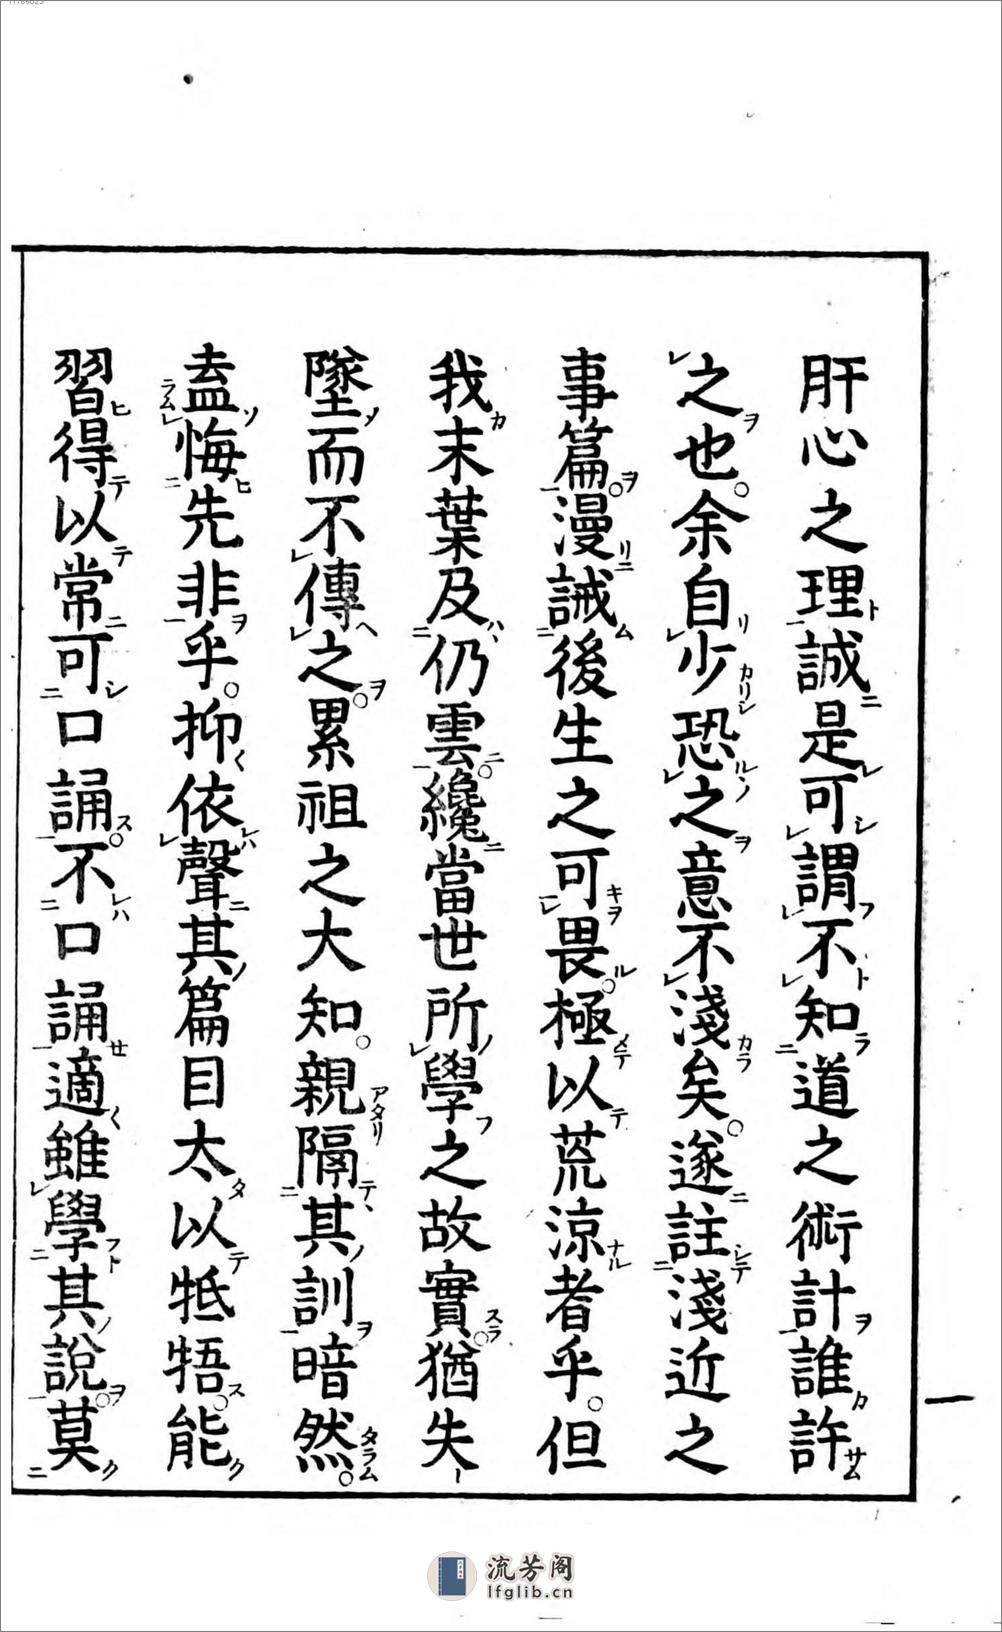 肝心之理誠是可謂不知道之術計誰許
之也余自少恐之意不淺矣遂註淺近之
事篇漫誡後生之可畏極以荒涼者乎但
我末葉及仍雲纔當世所學之故實猶失
墜而不傳之累祖之大知親隔其訓暗然
盍悔先非乎抑依聲其篇目太以牴牾能
習得以常可口誦不口誦適雖學其說莫
流芳阁
lfglib.cn